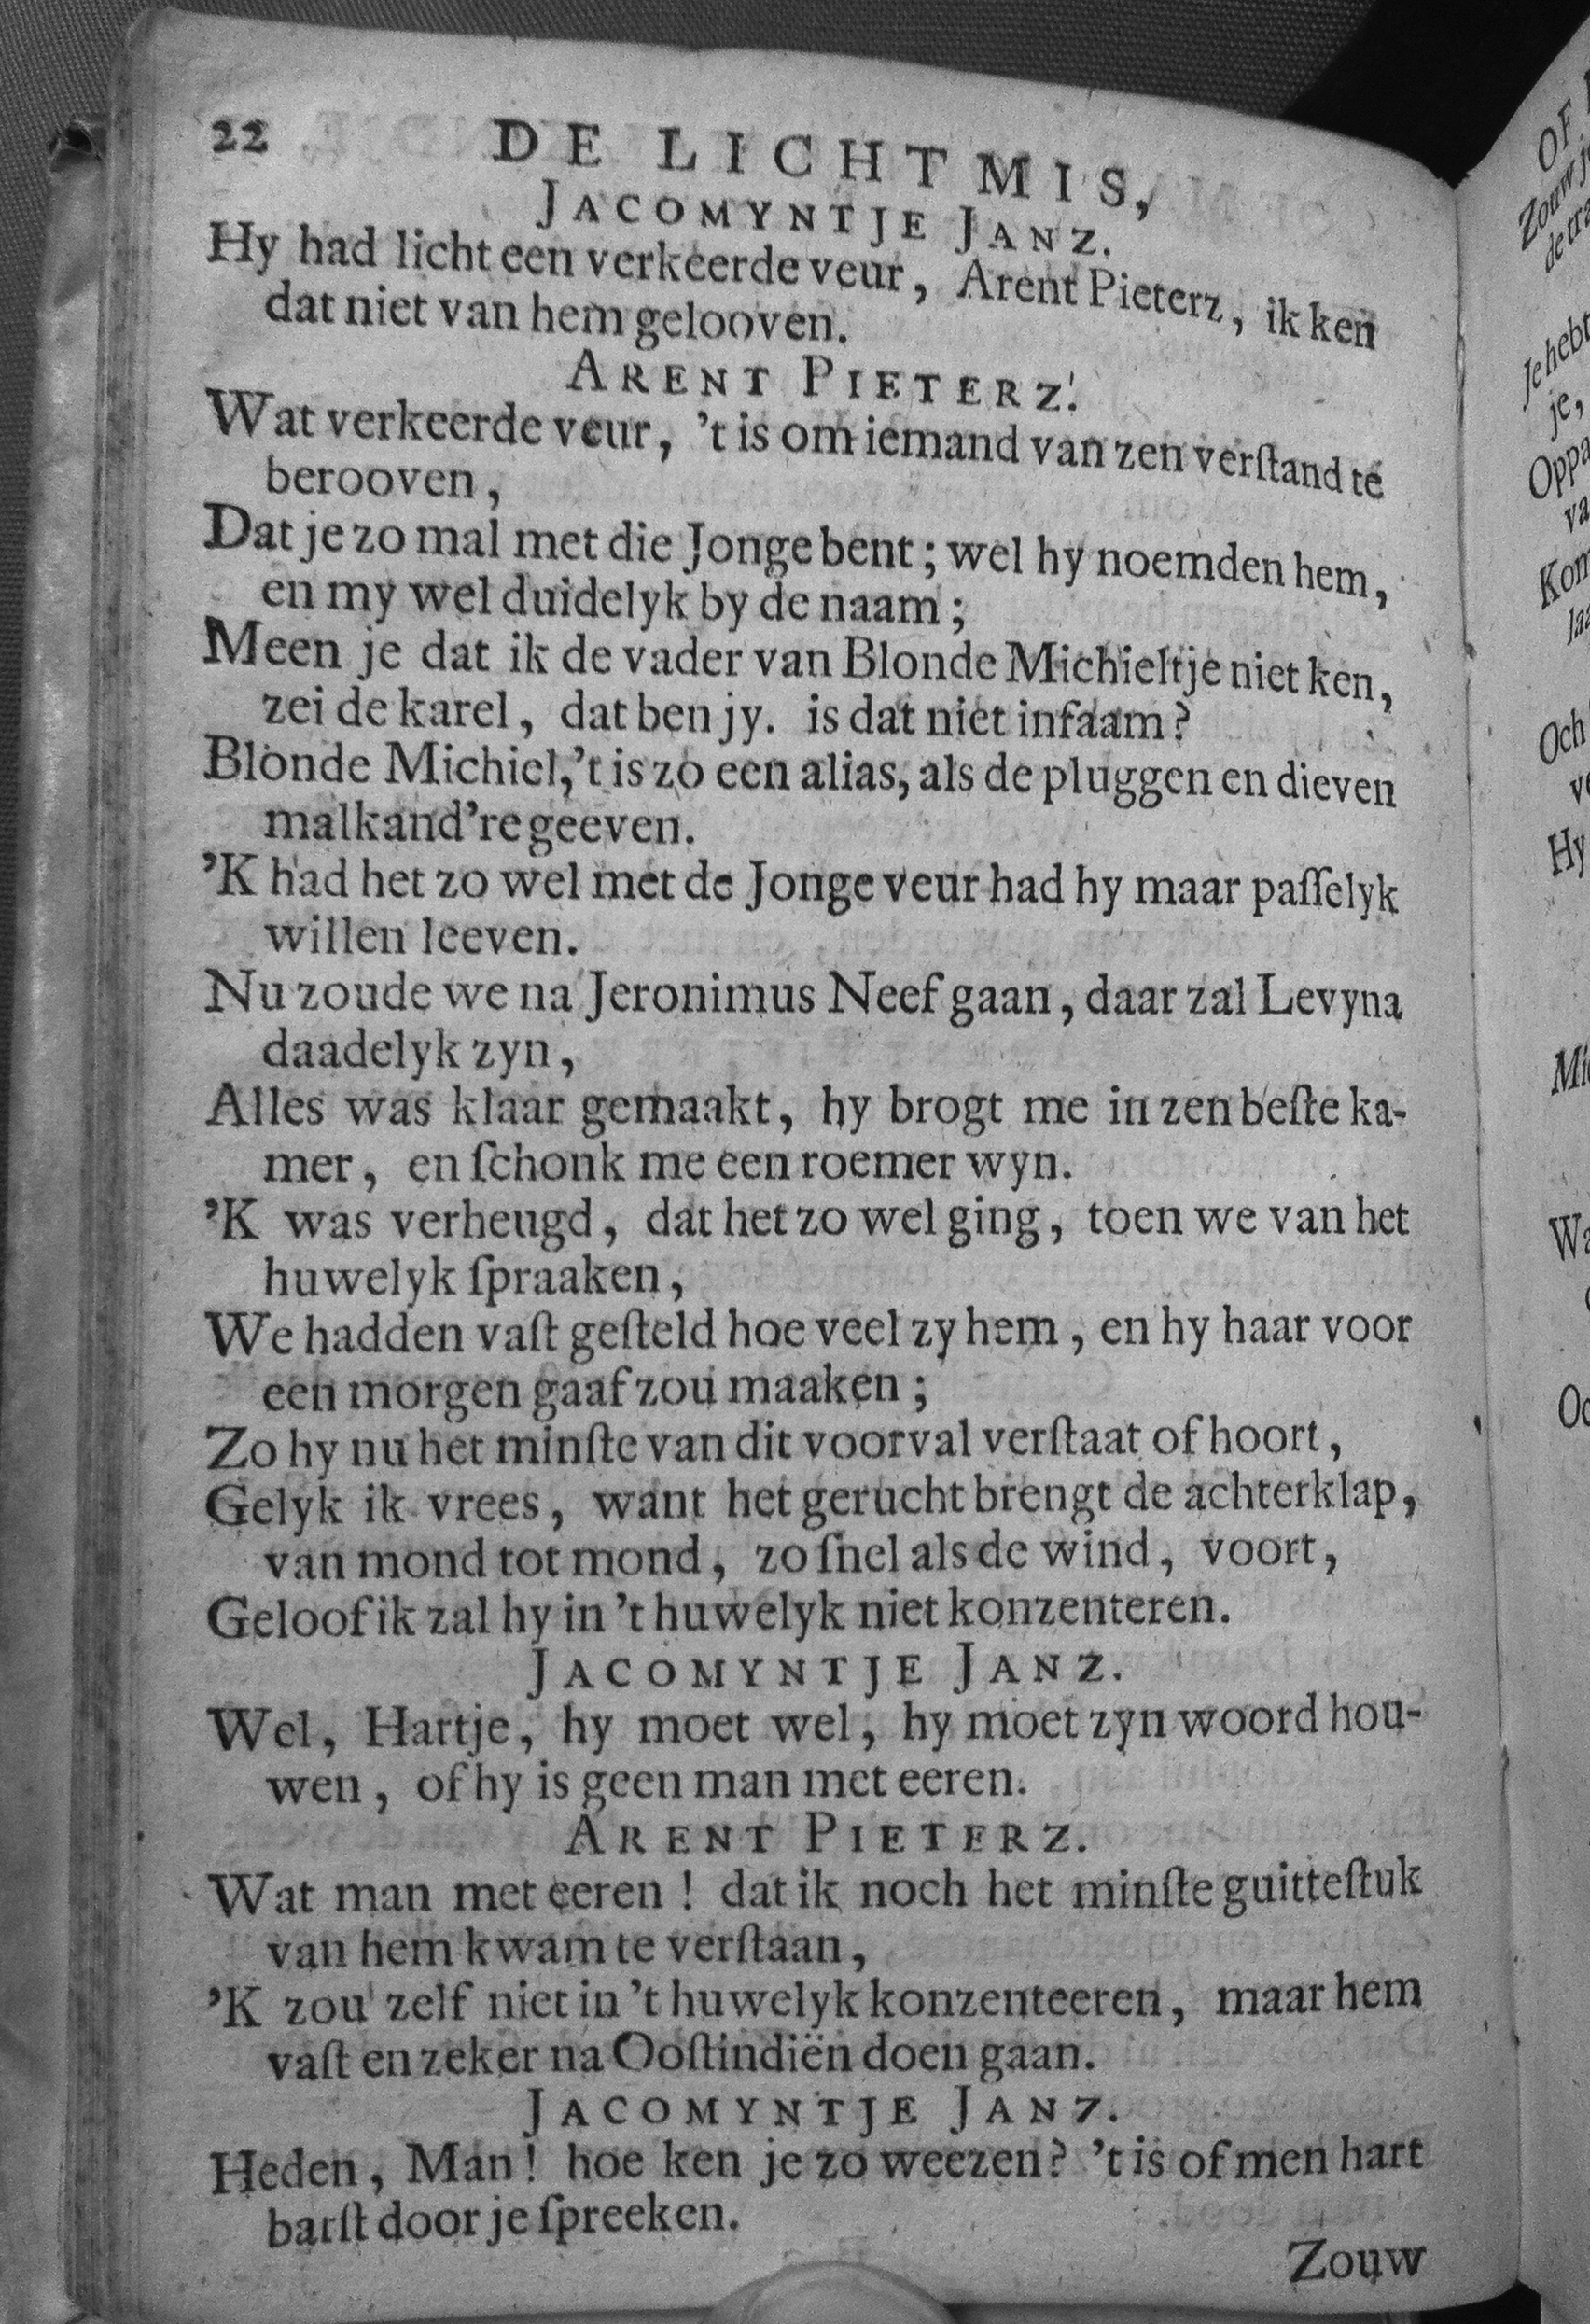 22 DE LICHTMIS,
JACOMYNTJE JANZ.
Hy had licht een verkeerde veur, Arent Pieterz, ik ken
dat niet van hem gelooven.
ARENT PIETERZ.
Wat verkeerde veur, 't is om iemand van zen verſtand te
berooven,
Dat je zo mal met die Jonge bent; wel hy noemden hem,
en my wel duidelyk by de naam;
Meen je dat ik de vader van Blonde Michieltje niet ken,
zei de karel, dat ben jy. is dat niet infaam?
Blonde Michiel, 't is zo een alias, als de pluggen en dieven
malkand're geeven.
'K had het zo wel met de Jonge veur had hy maar paſſelyk
willen leeven.
Nu zoude we na Jeronimus Neef gaan, daar zal Levyna
daadelyk zyn,
Alles was klaar gemaakt, hy brogt me in zen beſte ka-
mer, en ſchonk me een roemer wyn.
'K was verheugd, dat het zo wel ging, toen we van het
huwelyk ſpraaken,
We hadden vaſt geſteld hoe veel zy hem, en hy haar voor
een morgen gaaf zou maaken;
Zo hy nu het minſte van dit voorval verſtaat of hoort,
Gelyk ik vrees, want het gerucht brengt de achterklap,
van mond tot mond, zo ſnel als de wind, voort,
Geloof ik zal hy in 't huwelyk niet konzenteren.
JACOMYNTJE JANZ.
Wel, Hartje, hy moet wel, hy moet zyn woord hou-
wen, of hy is geen man met eeren.
ARENT PIETERZ.
Wat man met eeren! dat ik noch het minſte guitteſtuk
van hem kwam te verſtaan,
'K zou zelf niet in 't huwelyk konzenteeren, maar hem
vaſt en zeker na Ooſtindiën doen gaan.
JACOMYNTJE JANZ.
Heden, Man! hoe ken je zo weezen? 't is of men hart
barſt door je ſpreeken.
Zouw
OF
Zouw
de
Je hebt
je,
Och
Hy